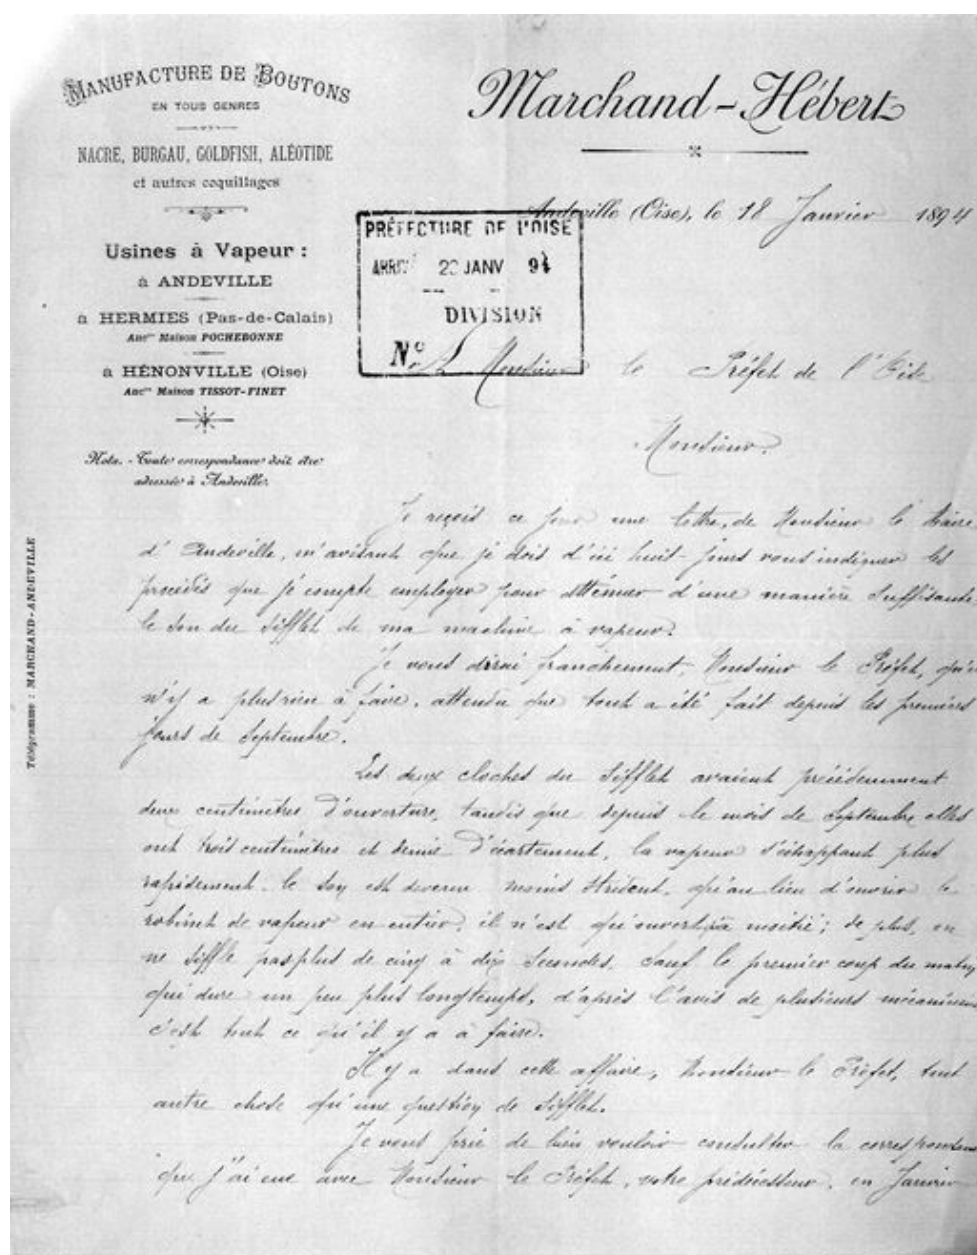 MANUFACTURE DE BOUTONS
EN TOUS GENRES
NACRE, BURGAU, GOLDFISH, ALÉOTIDE
et autres coquillages
Usines à Vapeur :
à ANDEVILLE
à HERMIES (Pas-de-Calais)
Ancne Maison POCHEBONNE
à HÉNONVILLE (Oise)
Ancne Maison TISSOT-FINET
Nota. - Toute correspondance doit être
adressée à Andeville.
Télégramme : MARCHAND-ANDEVILLE
Marchand-Hébert
Andeville (Oise), le 18 Janvier 1894
PRÉFECTURE DE L'OISE
ARRIVÉ 20 JANV 94
DIVISION
N°
A Monsieur le Préfet de l'Oise
Monsieur,
Je reçois ce jour une lettre, de Monsieur le Maire
d'Andeville, m'avisant que je dois d'ici huit-jours vous indiquer les
procédés que je compte employer pour atténuer d'une manière suffisante
le son du sifflet de ma machine à vapeur.
Je vous dirai franchement, Monsieur le Préfet, qu'il
n'y a plus rien à faire, attendu que tout a été fait depuis les premiers
jours de Septembre.
Les deux cloches du sifflet avaient précédemment
deux centimètres d'ouverture, tandis que depuis le mois de Septembre elles
ont trois centimètres et demie d'écartement, la vapeur s'échappant plus
rapidement le son est devenu moins strident, qu'au lieu d'ouvrir le
robinet de vapeur en entier, il n'est qu'ouvert à moitié ; de plus, on
ne siffle pas plus de cinq à dix secondes, sauf le premier coup du matin,
qui dure un peu plus longtemps, d'après l'avis de plusieurs mécaniciens
c'est tout ce qu'il y a à faire.
Il y a dans cette affaire, Monsieur le Préfet, tout
autre chose qu'une question de sifflet.
Je vous prie de bien vouloir consulter la correspondance
que j'ai eue avec Monsieur le Préfet, votre prédécesseur, en Janvier